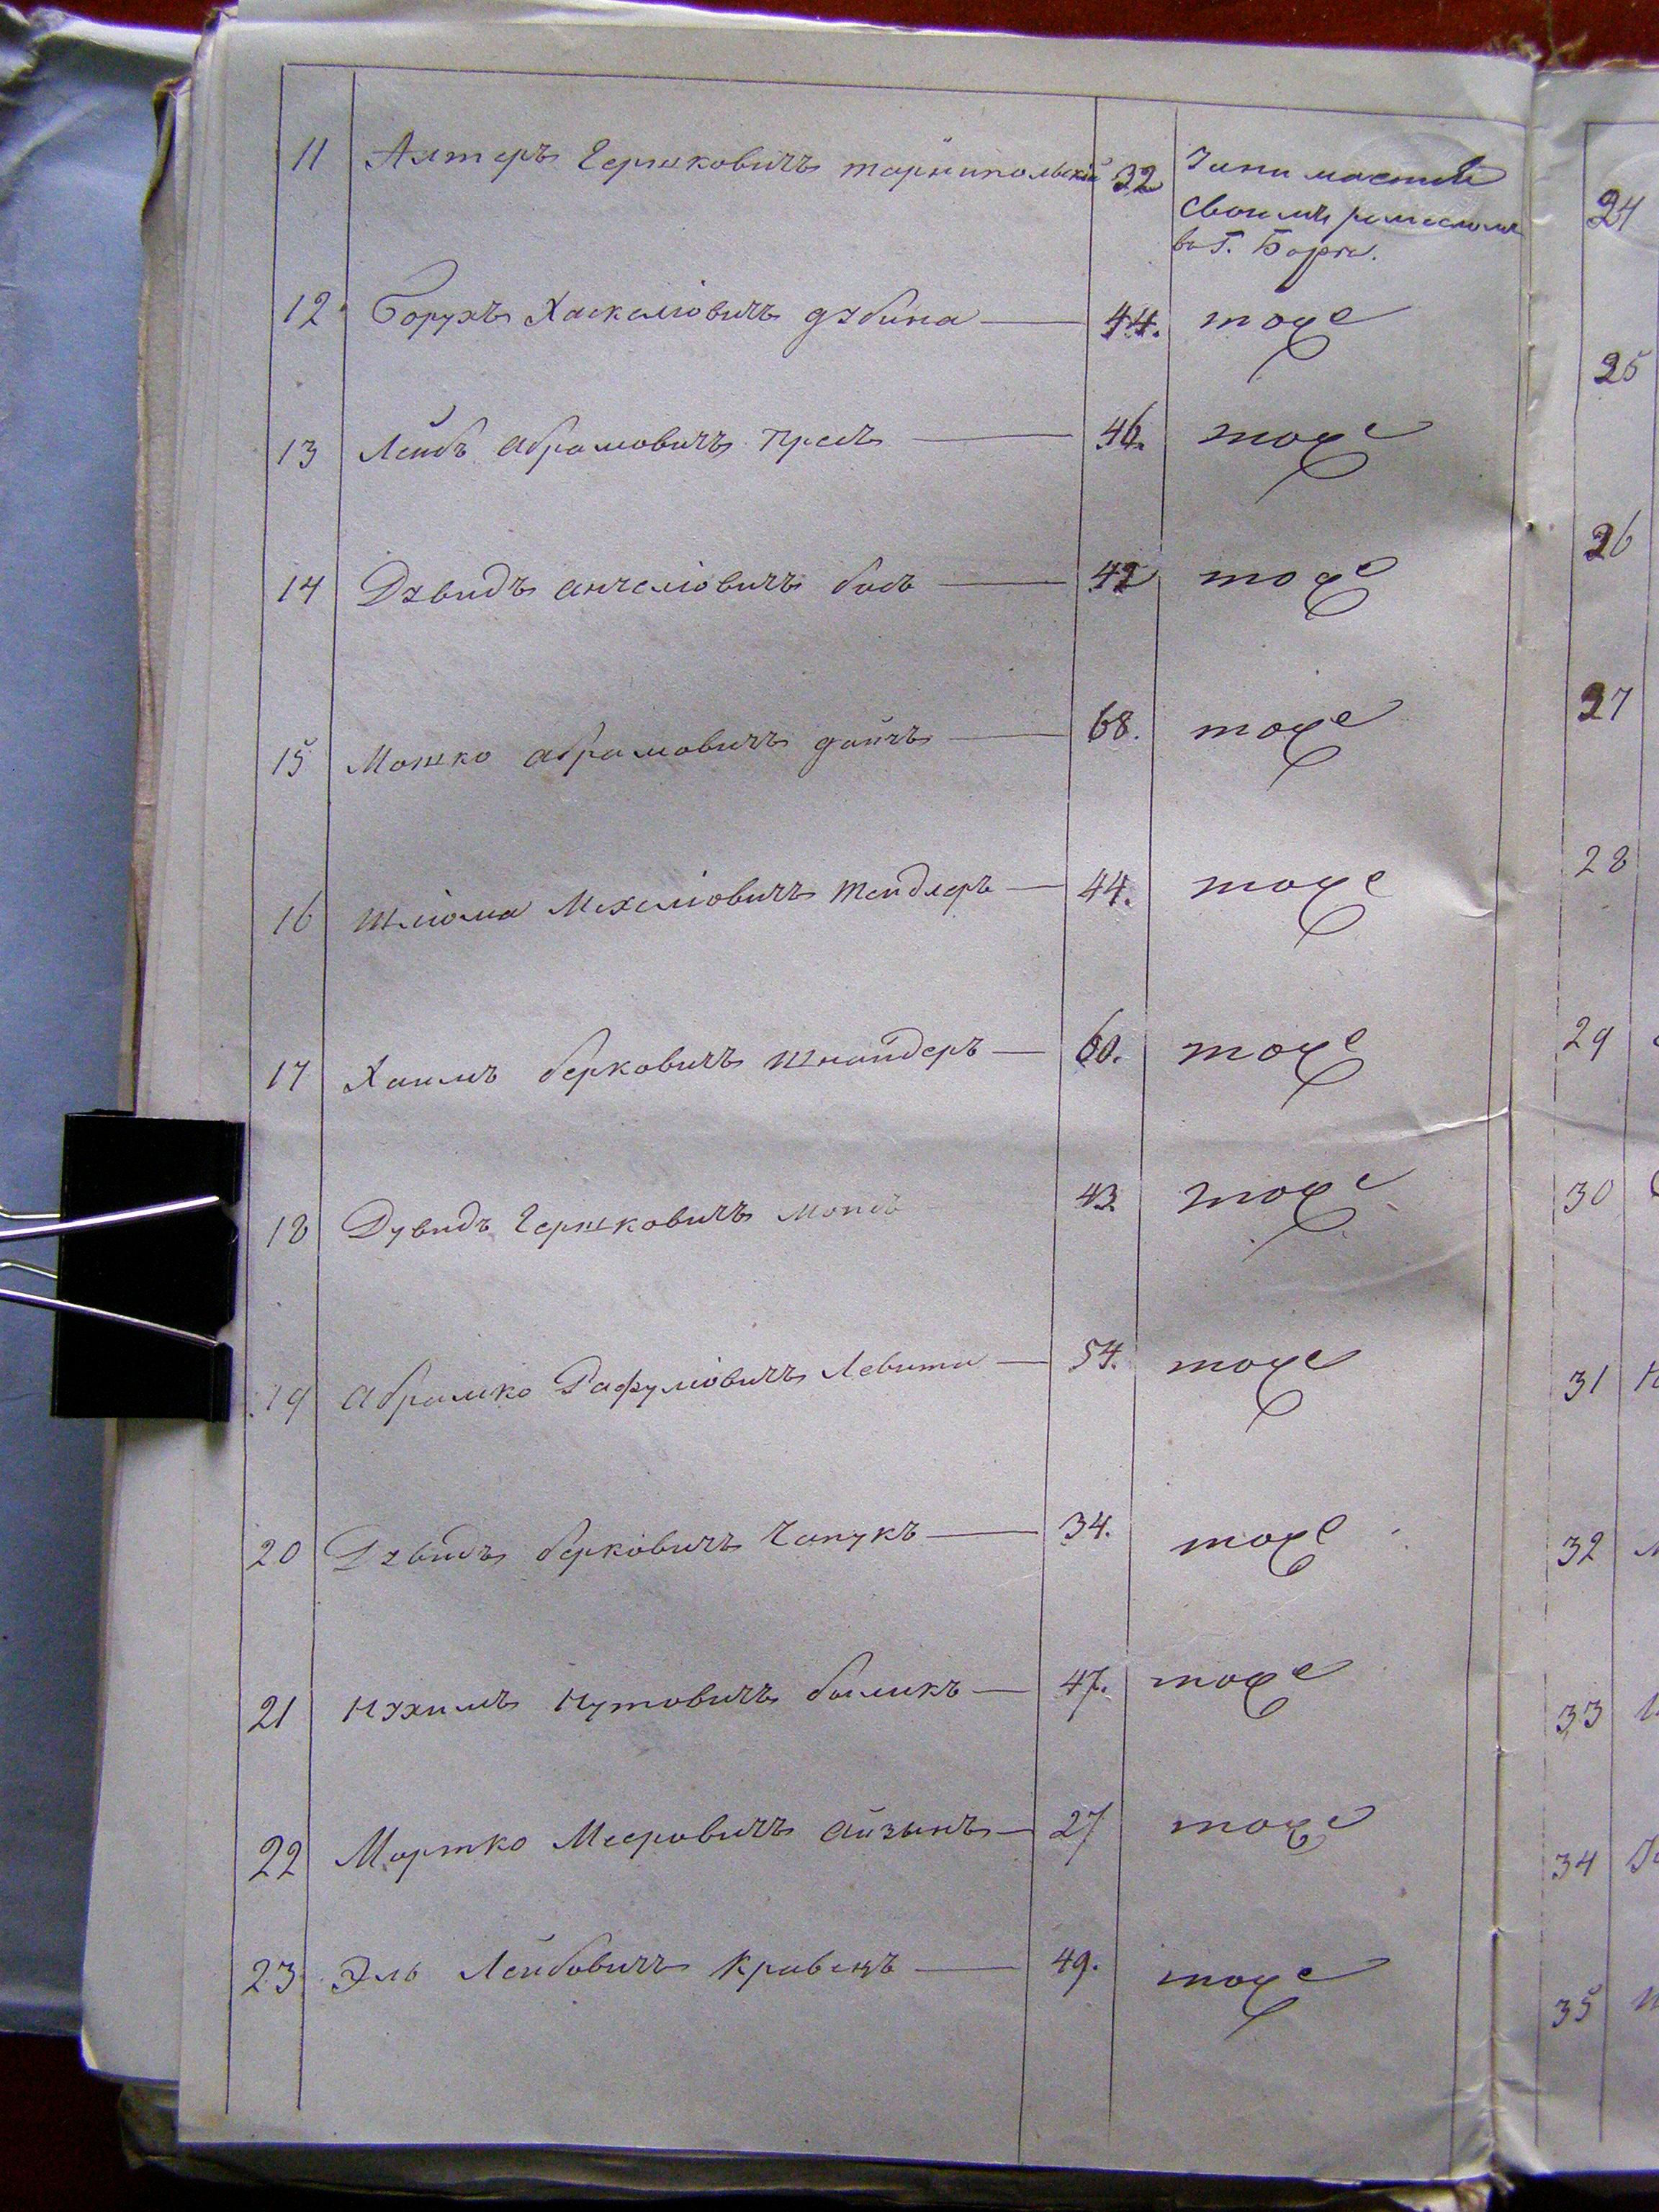 11 Алтеръ Гершковичъ тарнипольскій 32 Занимается
своимъ ремесломъ
въ Г. Барѣ.
12 Борухъ Хаскелiовичъ дзбина — 44. тоже
13 Лейбъ абрамовичъ Пресъ — 46. тоже
14 Дзвидъ анчелiовичъ бисъ — 42 тоже
15 Мошко абрамовичъ дайчъ — 68. тоже
16 Шлiома Мехелiовичъ тендлеръ — 44. тоже
17 Хаимъ берковичъ шнайдеръ — 60. тоже
18 Дувидъ Гершковичъ 43. тоже
19 абрамко Рафулiовичъ Левити — 54. тоже
20 Дзвидъ берковичъ Чапукъ — 34. тоже
21 Нухимъ Нутовичъ биликъ — 47. тоже
22 Мортко Мееровичъ айзынъ — 27 тоже
23 Эль Лейбовичъ Кравецъ — 49. тоже
24
25
26
27
28
29
30
31
32
33
34
35